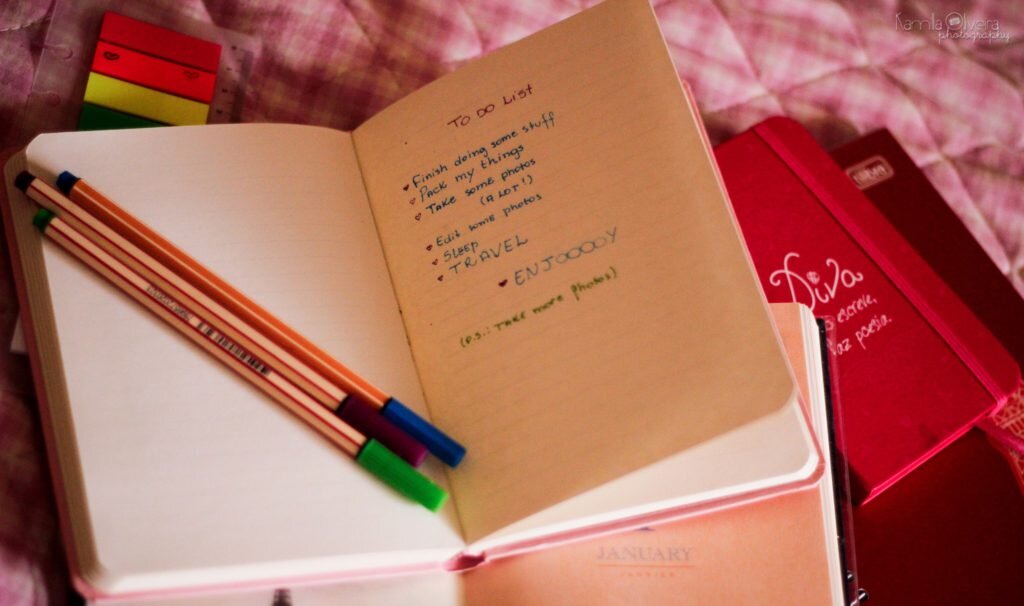 Kamila Oliveira
photography
TO DO LIST
Finish doing some stuff
Pack my things
Take some photos
(A LOT!)
Edit some photos
SLEEP
TRAVEL
ENJOOOOY
(P.S.: TAKE more photos)
Diva
escreve,
faz poesia.
JANUARY